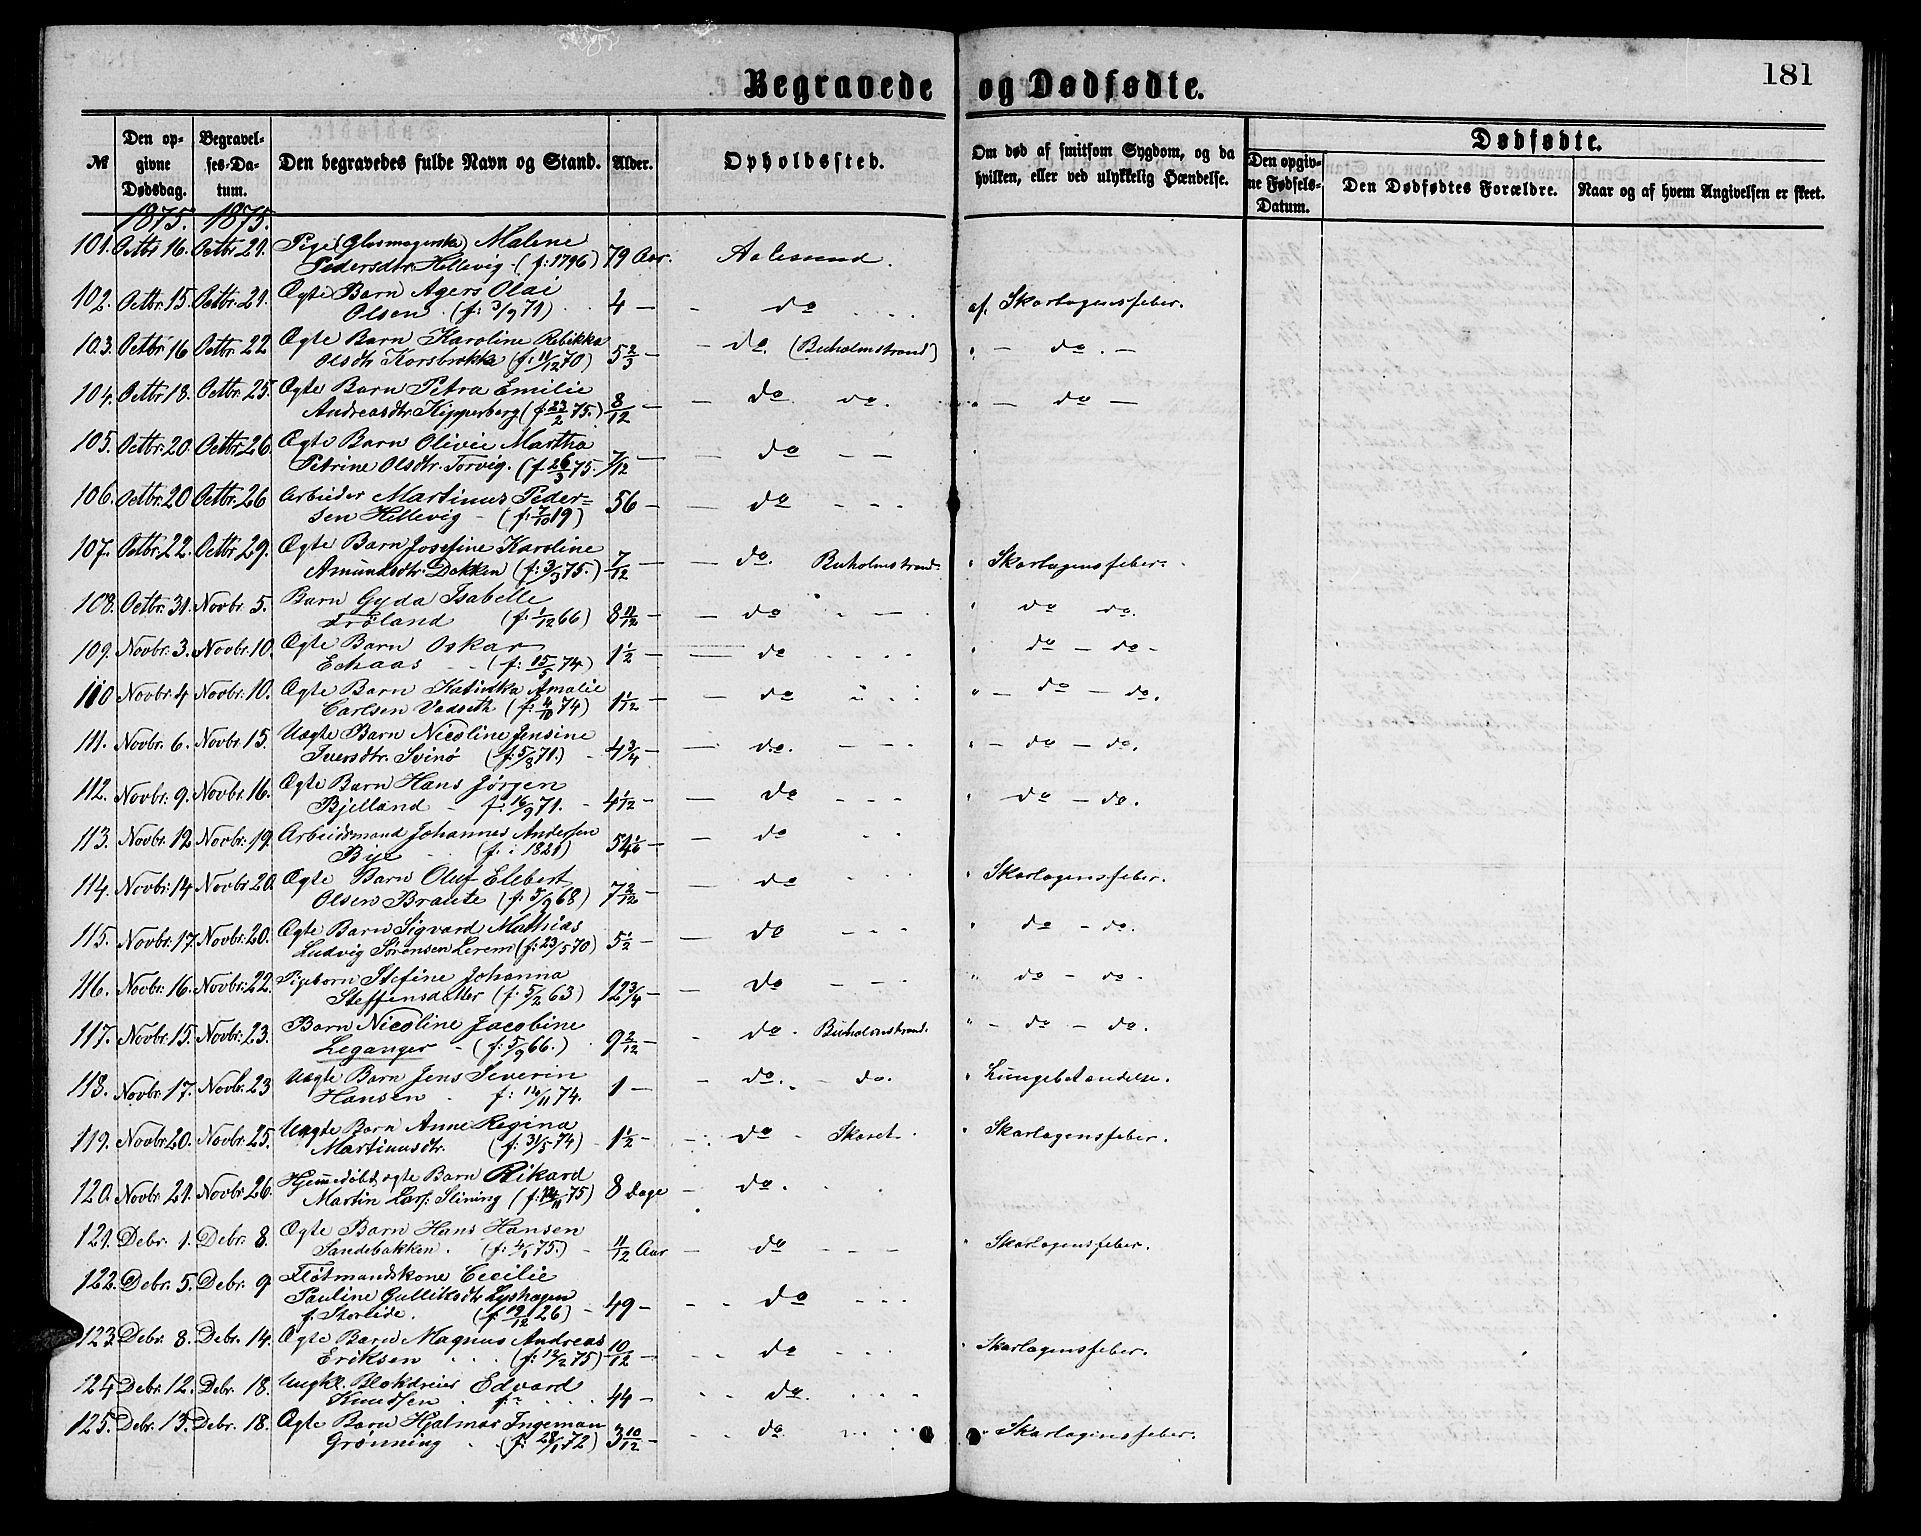 Begravede og Dødfødte.
181
№
Den opgivne Dødsdag.
Begravelses-Datum.
Den begravedes fulde Navn og Stand.
Alder.
Opholdssted.
Om død af smitsom Sygdom, og da hvilken, eller ved ulykkelig Hændelse.
Dødfødte.
Den opgivne Fødsels-Datum.
Den Dødfødtes Forældre.
Naar og af hvem Angivelsen er skeet.
1875. 1875.
101. Octbr 16. Octbr 21. Pige Malene
Pedersdtr. Hellevig. (f: 1796) 79 Aar. Aalesund.
102. Octbr. 15. Octbr. 21. Ægte Barn Agers Olai
Olsen. (f: 3/9 71) 4 — do af. Skarlagensfeber.
103. Octbr. 16 Octbr. 22 Ægte Barn Karoline Rebikka
Olsdtr Korsbrekke (f. 11/12 70) 5 2/3 — do. (Buholmstrand) " — do. —
104. Octbr 18. Octbr. 25. Ægte Barn Petra Emilie
Andreasdtr. Kipperberg (f. 23/2 75.) 8/12 — do. do. " — do —
105. Octbr. 20. Octbr. 26. Ægte Barn Olivie Martha
Petrine Olsdtr. Torvig. (f. 26/3 75. 7/12 — do — —
106. Octbr. 20 Octbr. 26 Arbeider Martinus Peder-
sen Hellevig — (f: 7/10 19) 56 — do - - -
107. Octbr. 22. Octbr. 29. Ægte Barn Josefine Karoline
Amundsdtr. Dakken (f: 3/3 75.) 7/12 — do. Buholmstrand. " Skarlagensfeber.
108. Octbr. 31. Novbr. 5. Barn Gyda Isabelle
Frøland (f: 1/12 66) 8 11/12 — do " do do.
109. Novbr. 3. Novbr. 10. Ægte Barn Oskar
Echaas (f: 15/5 74) 1 1/2 — do " do — do -
110 Novbr. 4 Novbr. 10. Ægte Barn Katinka Amalie
Carlsen Vadseth (f: 4/10 74) 1 1/12 — do " — do — do.
111. Novbr. 6. Novbr. 15. Uægte Barn Nicoline Jensine
Iversdtr. Svinø (f: 5/8 71.) 4 3/4 — do. - - - " — do — do.
112. Novbr. 9. Novbr. 16. Ægte Barn Hans Jørgen
Bjelland f: 16/9 71. 4 1/12 — do - - - " do — do.
113. Novbr. 12 Novbr. 19. Arbeidsmand Johannes Andersen
Bye (f. i 1821) 54 1/6 — do
114. Novbr. 14 Novbr. 20. Ægte Barn Oluf Elebert
Olsen Braute (f: 5/9 68) 7 2/12 — do " Skarlagensfeber.
115. Novbr. 17. Novbr. 20. Ægte Barn Sigvard Mathias
Ludvig Sørensen Lerem (f: 23/5 70) 5 1/2 — do - - - " do — do.
116. Novbr. 16. Novbr. 22. Pigebarn Stefine Johanna
Steffensdatter (f: 5/2 63) 12 3/4 — do - - - " do — do.
117. Novbr. 15. Novbr. 23. Barn Nicoline Jacobine
Leganger (f: 5/9 66.) 9 2/12 — do. Buholmstrand. " — do — do.
118. Novbr. 17. Novbr. 23 Uægte Barn Jens Severin
Hansen f: 74. 1 — do. — do. " Lungebetændelse.
119. Novbr. 20. Novbr. 25. Uægte Barn Anne Regina
Martinusdtr. (f: 31/5 74) 1 1/2 — do - Skaret " Skarlagensfeber.
120. Novbr. 21. Novbr. 26. Hjemmedøbt ægte Barn Rikard
Martin Lars. Slining (f: 14/11 75) 8 Dage — do.
121. Debr. 1. Debr. 8. Ægte Barn Hans Hansen
Sandebakken. (f: 4/1 75.) 11/12 Aar — do - - - " Skarlagensfeber.
122. Debr. 5. Debr. 9 Fløtmandskone Cecilie
Pauline Gulliksdtr Lyshagen
f. Storeide. (f: 19/12 26) 49 — do - - -
123. Debr. 8. Debr. 14. Ægte Barn Magnus Andreas
Eriksen (f: 12/2 75) 10/12 — do - - - " Skarlagensfeber.
124 Debr. 12. Debr. 18. Ungk. Blokdreier Edvard
Knudsen. 44 — do.
125. Debr. 13. Debr. 18. Ægte Barn Hjalmar Ingeman
Grønning (f: 28/1 72) 3 10/12 — do. " Skarlagensfeber.